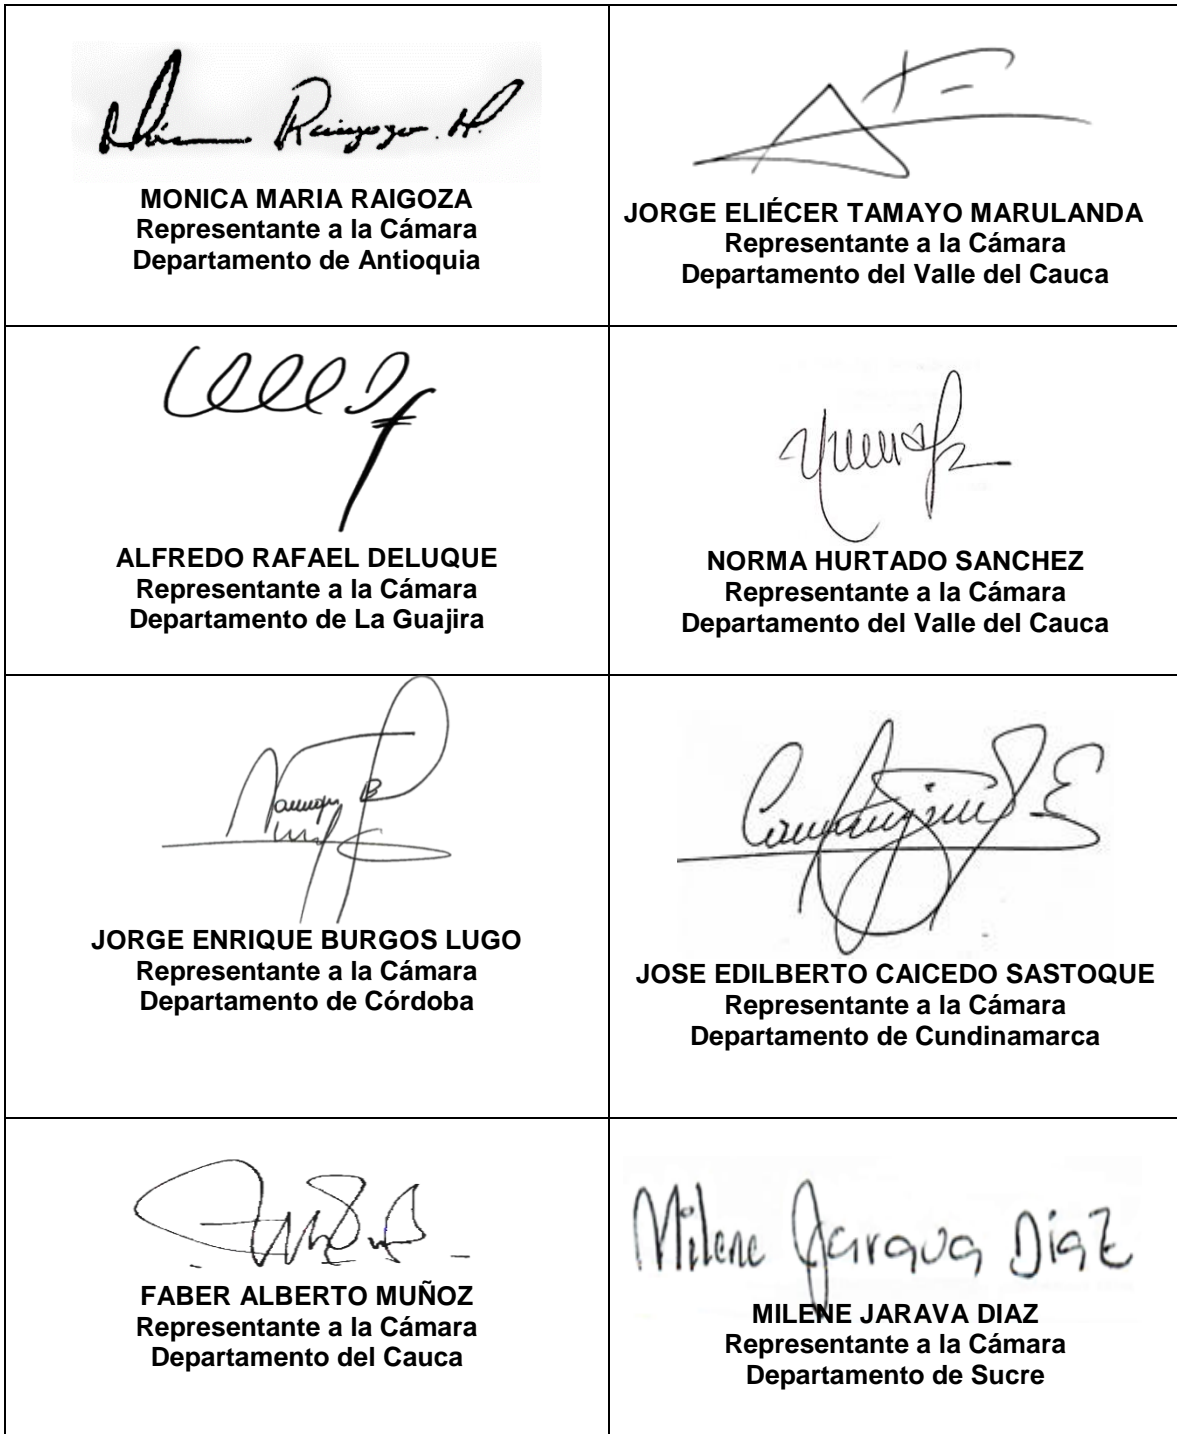 Raigoza. M.
MONICA MARIA RAIGOZA
Representante a la Cámara
Departamento de Antioquia
JORGE ELIÉCER TAMAYO MARULANDA
Representante a la Cámara
Departamento del Valle del Cauca
ALFREDO RAFAEL DELUQUE
Representante a la Cámara
Departamento de La Guajira
NORMA HURTADO SANCHEZ
Representante a la Cámara
Departamento del Valle del Cauca
JORGE ENRIQUE BURGOS LUGO
Representante a la Cámara
Departamento de Córdoba
JOSE EDILBERTO CAICEDO SASTOQUE
Representante a la Cámara
Departamento de Cundinamarca
FABER ALBERTO MUÑOZ
Representante a la Cámara
Departamento del Cauca
Milene Jarava Diaz
MILENE JARAVA DIAZ
Representante a la Cámara
Departamento de Sucre